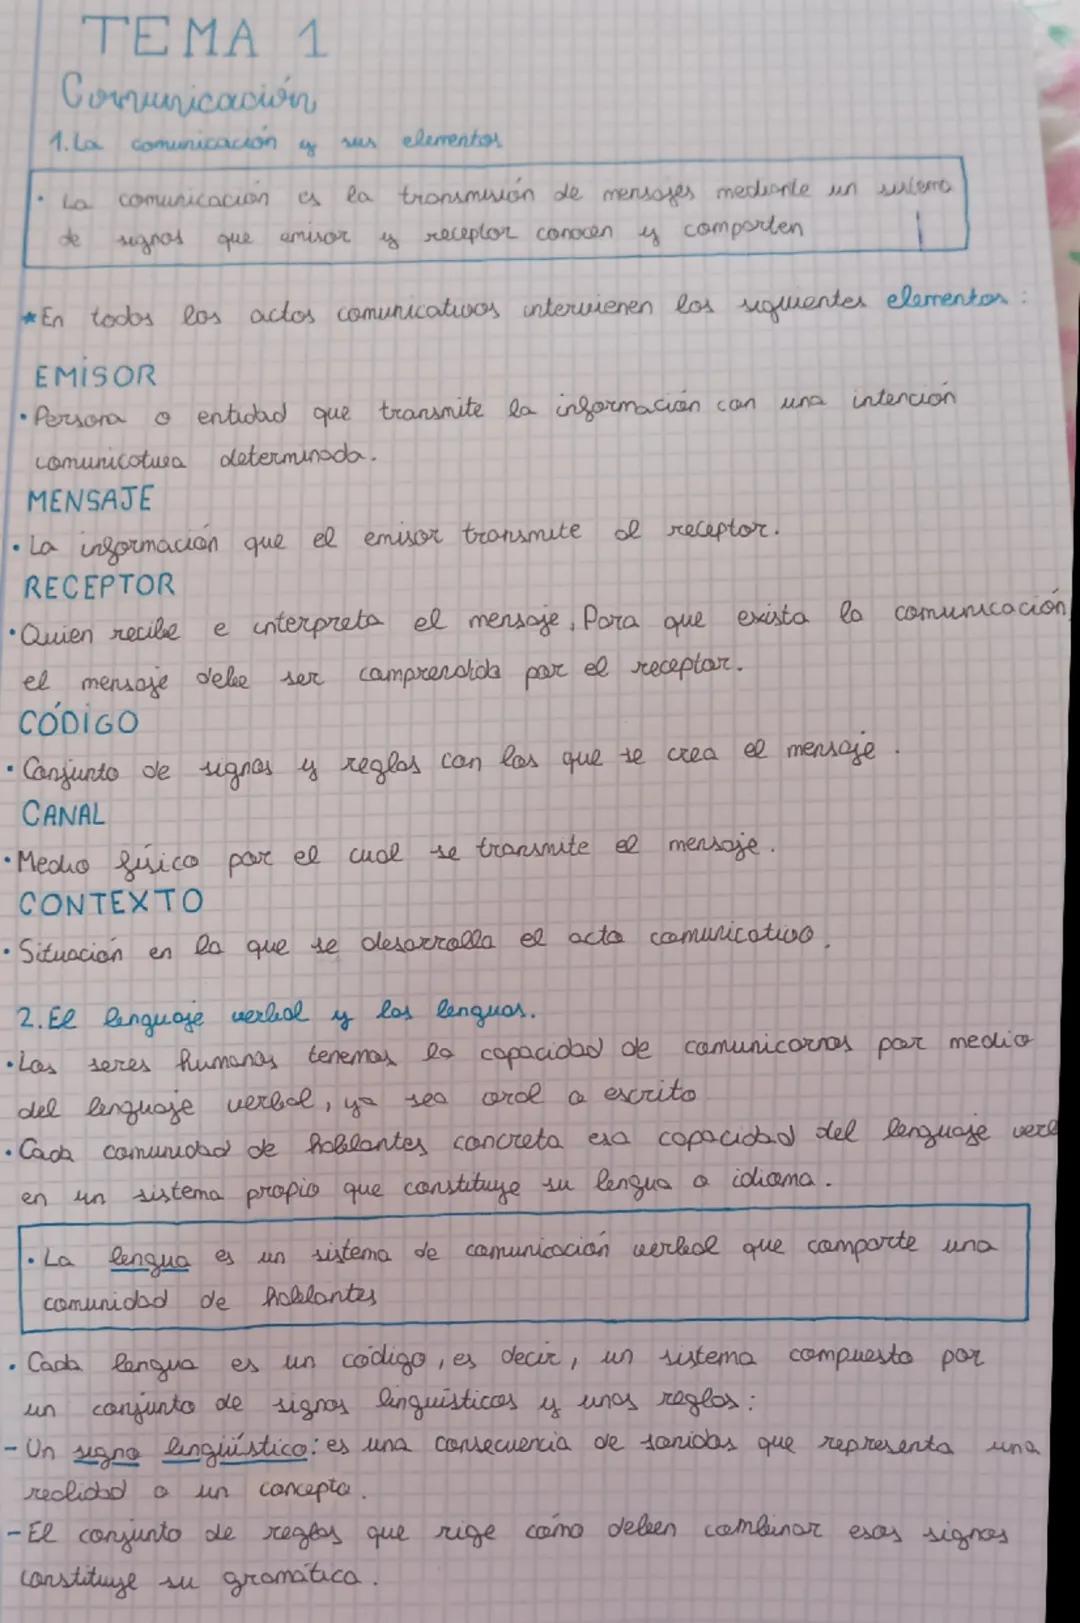 TEMA 1
Comunicación
1. La comunicación y sus elementos
· La comunicación es la transmisión de mensajes mediante un sistema
de signos que emisor y receptor conocen y comparten
*En todos los actos comunicativos intervienen los siguientes elementos:
EMISOR
· Persona o entidad que transmite la información con una intención
comunicativa determinada.
MENSAJE
· La información que el emisor transmite al receptor.
RECEPTOR
· Quien recibe e interpreta el mensaje, Para que exista la comunicación,
el mensaje debe ser comprendido por el receptor.
CÓDIGO
· Conjunto de signos y reglas con los que se crea el mensaje.
CANAL
· Medio físico por el cual se transmite el mensaje.
CONTEXTO
· Situación en la que se desarrolla el acto comunicativo.
2. El lenguaje verbal y las lenguas.
· Los seres humanos tenemos la capacidad de comunicarnos por medio
del lenguaje verbal, ya sea oral o escrito
· Cada comunidad de hablantes concreta esa capacidad del lenguaje verb
en un sistema propio que constituye su lengua o idioma.
· La lengua es un sistema de comunicación verbal que comparte una
comunidad de hablantes
· Cada lengua es un código, es decir, un sistema compuesto por
un conjunto de signos lingüísticos y unas reglas:
- Un signo lingüístico: es una consecuencia de sonidos que representa una
realidad o un concepto.
- El conjunto de reglas que rige cómo deben combinar esos signos
constituye su gramática.